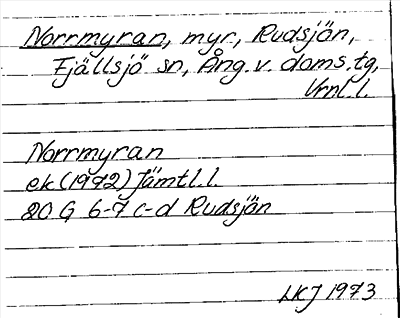 Norrmyran, myr, Rudsjön,
Fjällsjö sn, Ång.v. doms.tg,
Vrnl.l.
Norrmyran
ek (1972) Jämtl.l.
20 G 6-7 c-d Rudsjön
LKJ 1973